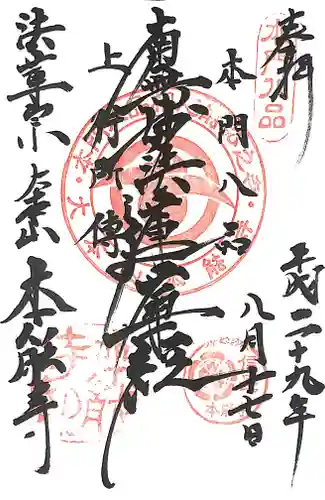 奉拝
平成二十九年
八月十七日
本門八品
南無妙法蓮華経
上行所傳
法華宗 大本山 本能寺